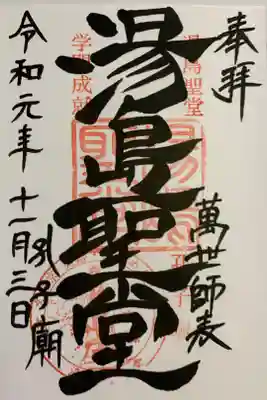 奉拝
萬世師表
湯島聖堂
湯島聖堂
孔子廟
学問成就
令和元年十一月三日